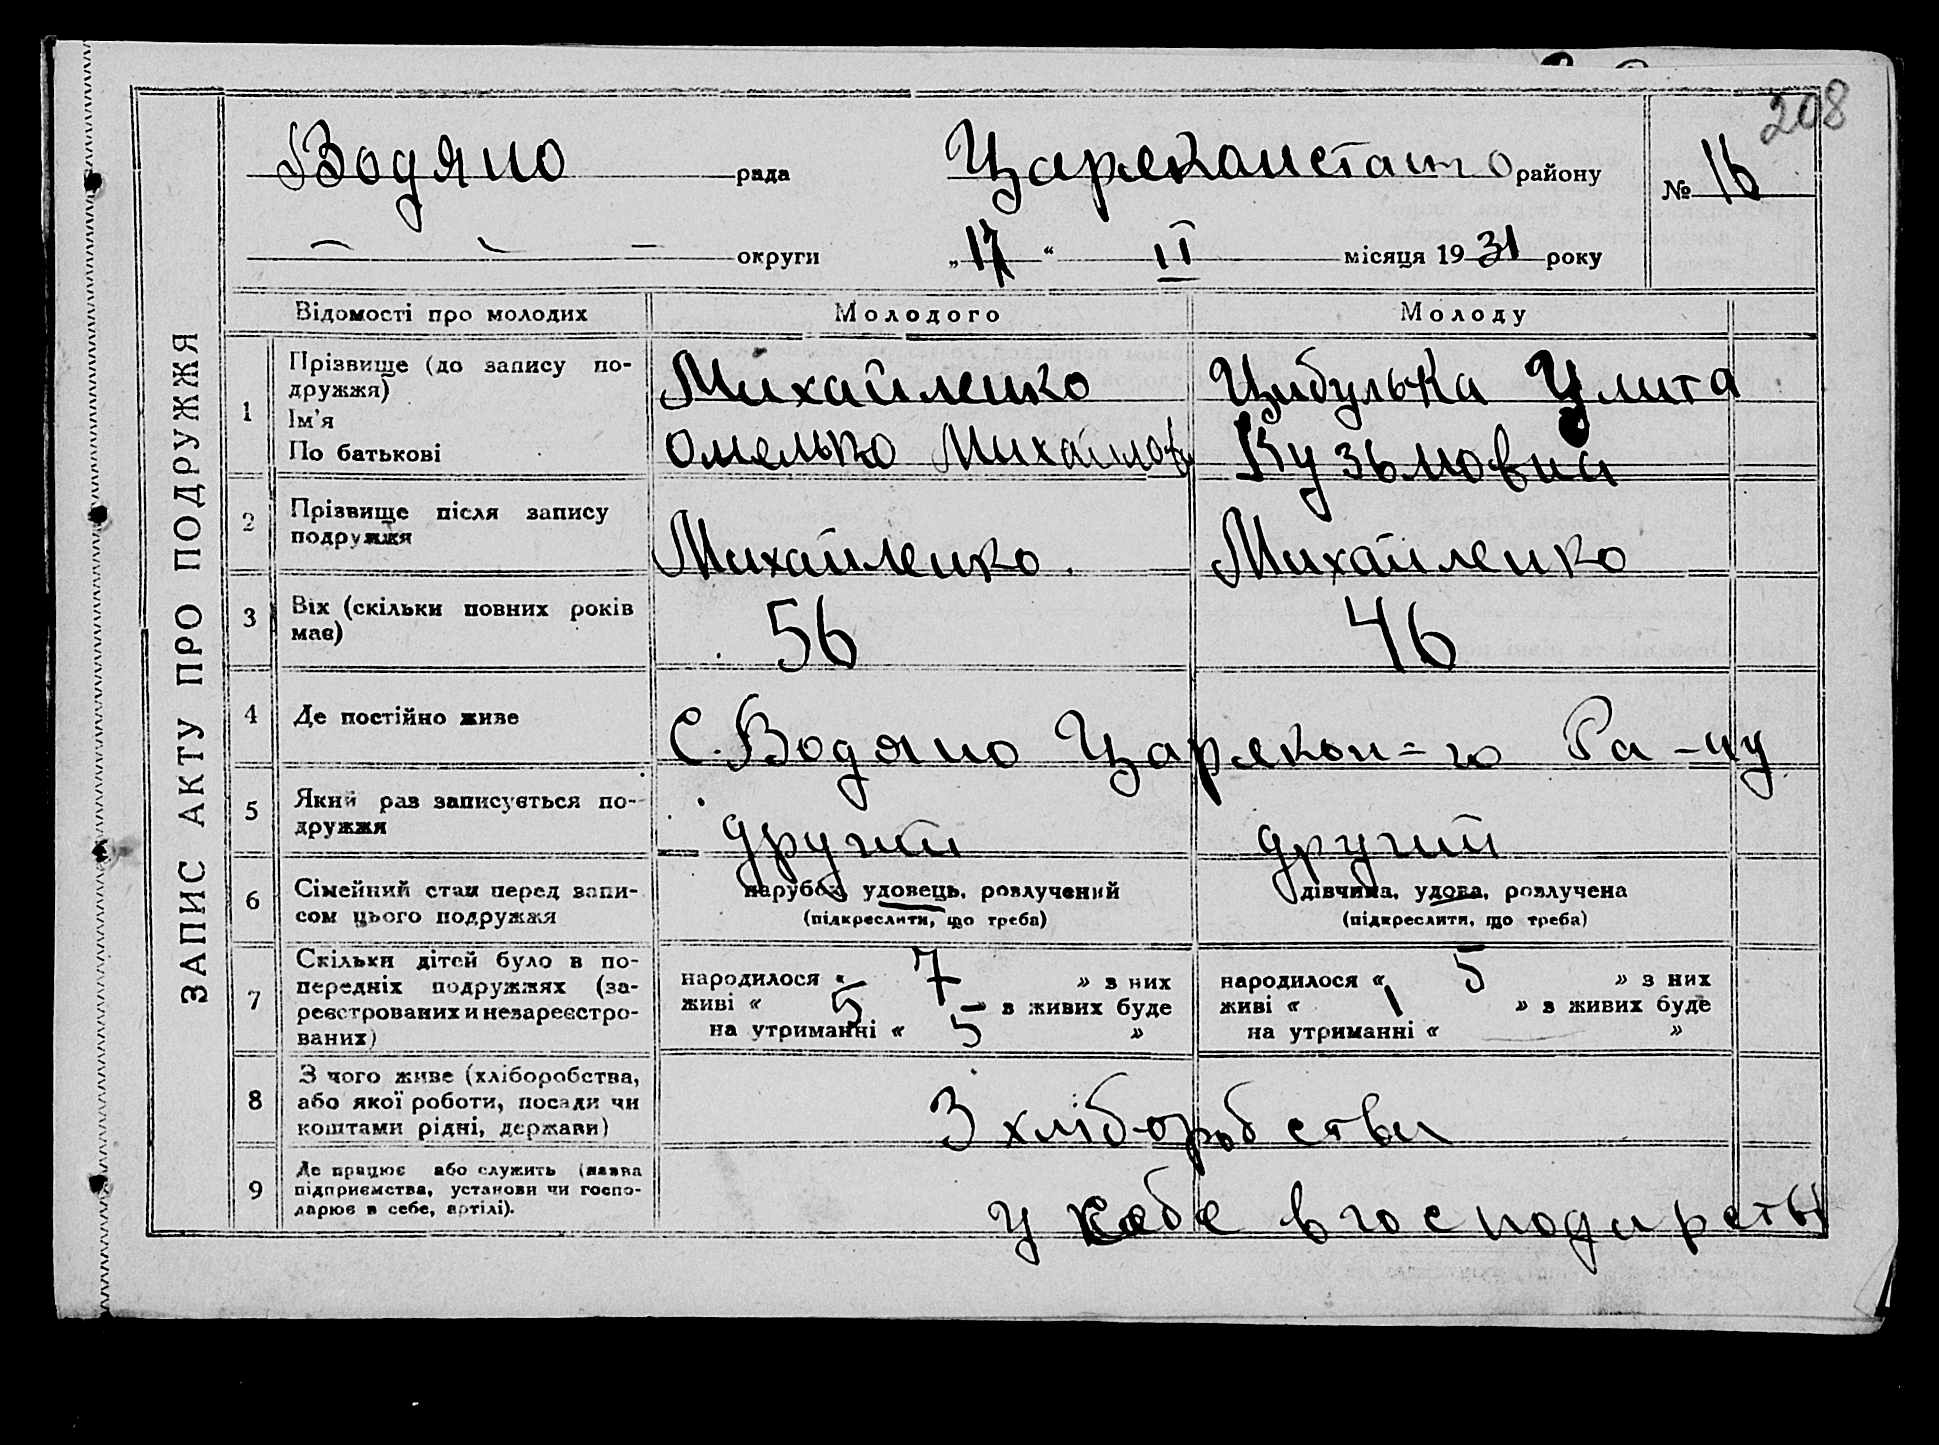 208
Водяно рада Царяконстанто району № 16
округи „17“ II місяця 1931 року
ЗАПИС АКТУ ПРО ПОДРУЖЖЯ
Відомості про молодих Молодого Молоду
1 Прізвище (до запису по-
дружжя)
Ім'я
По батькові
Михайленко
Омелько Михайлов
Цибулька Улита
Кузьмовна
2 Прізвище після запису
подружжя
Михайленко Михайленко
3 Віх (скільки повних років
має)
56 46
4 Де постійно живе С. Водяно Царякон=го Ра-ну
5 Який раз записується по-
дружжя
другий другий
6 Сімейний стан перед запи-
сом цього подружжя
парубок, удовець, розлучений
(підкреслити, що треба)
дівчина, удова, розлучена
(підкреслити, що треба)
7 Скільки дітей було в по-
передніх подружжях (за-
реєстрованих и незареєстро-
ваних)
народилося « 7 » з них
живі « 5 » з живих буде
на утриманні « 5 »
народилося « 5 » з них
живі « 1 » з живих буде
на утриманні « — »
8 З чого живе (хліборобства,
або якої роботи, посади чи
коштами рідні, держави)
З хліборобства
9 Де працює або служить (назва
підприємства, установи чи госпо-
дарює в себе, артілі).
у себе в господарств